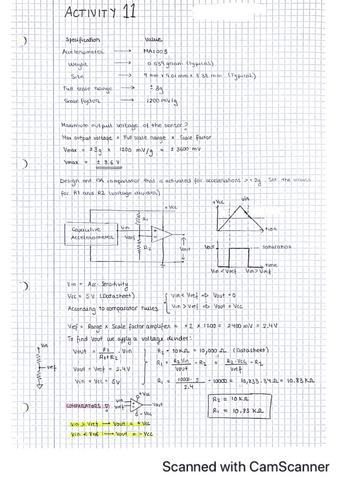 ACTIVITY 11
Specification Value
Accelerometer → MA1003
Weight → 0.039 gram (Typical)
Size
Full scale range → ± 3g
Scale factor → 1200 mV/g
Maximum output voltage of the sensor?
Max output voltage = Full scale range × Scale factor
Vmax = ± 3g × 1200 mV/g = ± 3600 mV
Vmax = ± 3.6 V
Design one OA comparator that is activated for accelerations > + 2g. Set the values
for R1 and R2 (voltage divider)
+ Vcc
R1
Capacitive
Accelerometer
Vin
Vref
R2
Vout
+Vcc
Vin
time
Vout
saturation
time
Vin < Vref Vin > Vref
Vin = Acc. Sensitivity
Vcc = 5V (Datasheet)
According to comparator rules
Vin < Vref ⇒ Vout = 0
Vin > Vref ⇒ Vout = Vcc
Vref = Range × Scale factor amplifier = + 2 × 1200 = 2400 mV = 2.4 V
To find Vout we apply a voltage divider:
Vout = R2 / R1 + R2 · Vin
R2 = 10 KΩ = 10,000 Ω (Datasheet)
Vout = Vref = 2.4V
R1 = R2 Vin / Vout - R2 = R2 · Vcc / Vref - R2
Vin = Vcc = 5V
R1 = 10000 · 5 / 2.4 - 10000 = 10,833.34 Ω = 10.83 KΩ
COMPARATORS
Vin
Vref
+ Vcc
Vout
- Vcc
Vin > Vref → Vout = + Vcc
Vin < Vref → Vout = - Vcc
R2 = 10 KΩ
R1 = 10,83 KΩ
Scanned with CamScanner